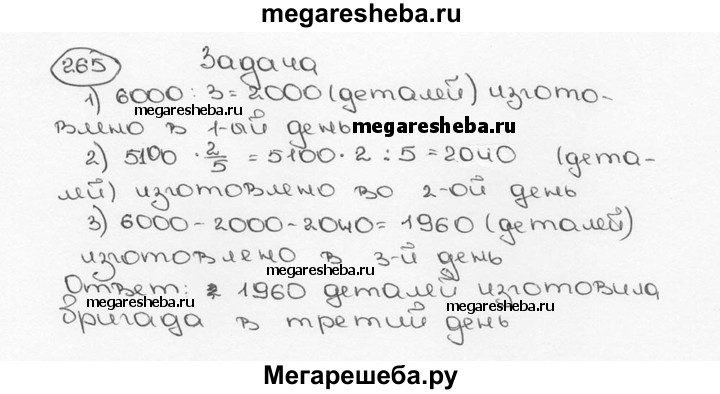 megaresheba.ru
265 Задача
1) 6000 : 3 = 2000 (деталей) изгото-
megaresheba.ru
влено в 1-ый день
megaresheba.ru
2) 5100 · 2/5 = 5100 · 2 : 5 = 2040 (дета-
лей) изготовлено во 2-ой день
3) 6000 - 2000 - 2040 = 1960 (деталей)
изготовлено в 3-й день
megaresheba.ru
Ответ: 1960 деталей изготовила
megaresheba.ru
megaresheba.ru
бригада в третий день
Мегарешеба.ру